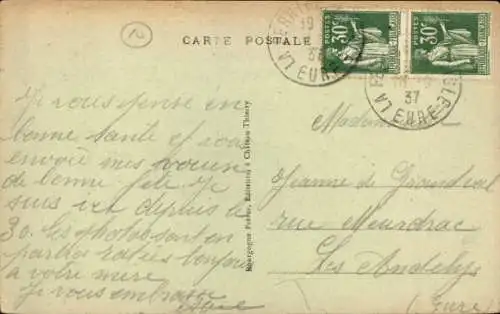 2
CARTE POSTALE
30c
30c
37
37
LA FERTE
LA EURE
Je vous pense en
bonne santé et vous
envoie mes voeux
de bonne fête. Je
suis ici depuis le
30. Les photos sont en
partie ratées bonjour
à votre mère
Je vous embrasse
Bourgogne Frères, Editeurs à Château-Thierry
Jeanne de Grandval
rue Meurdrac
Les Andelys
(Eure)